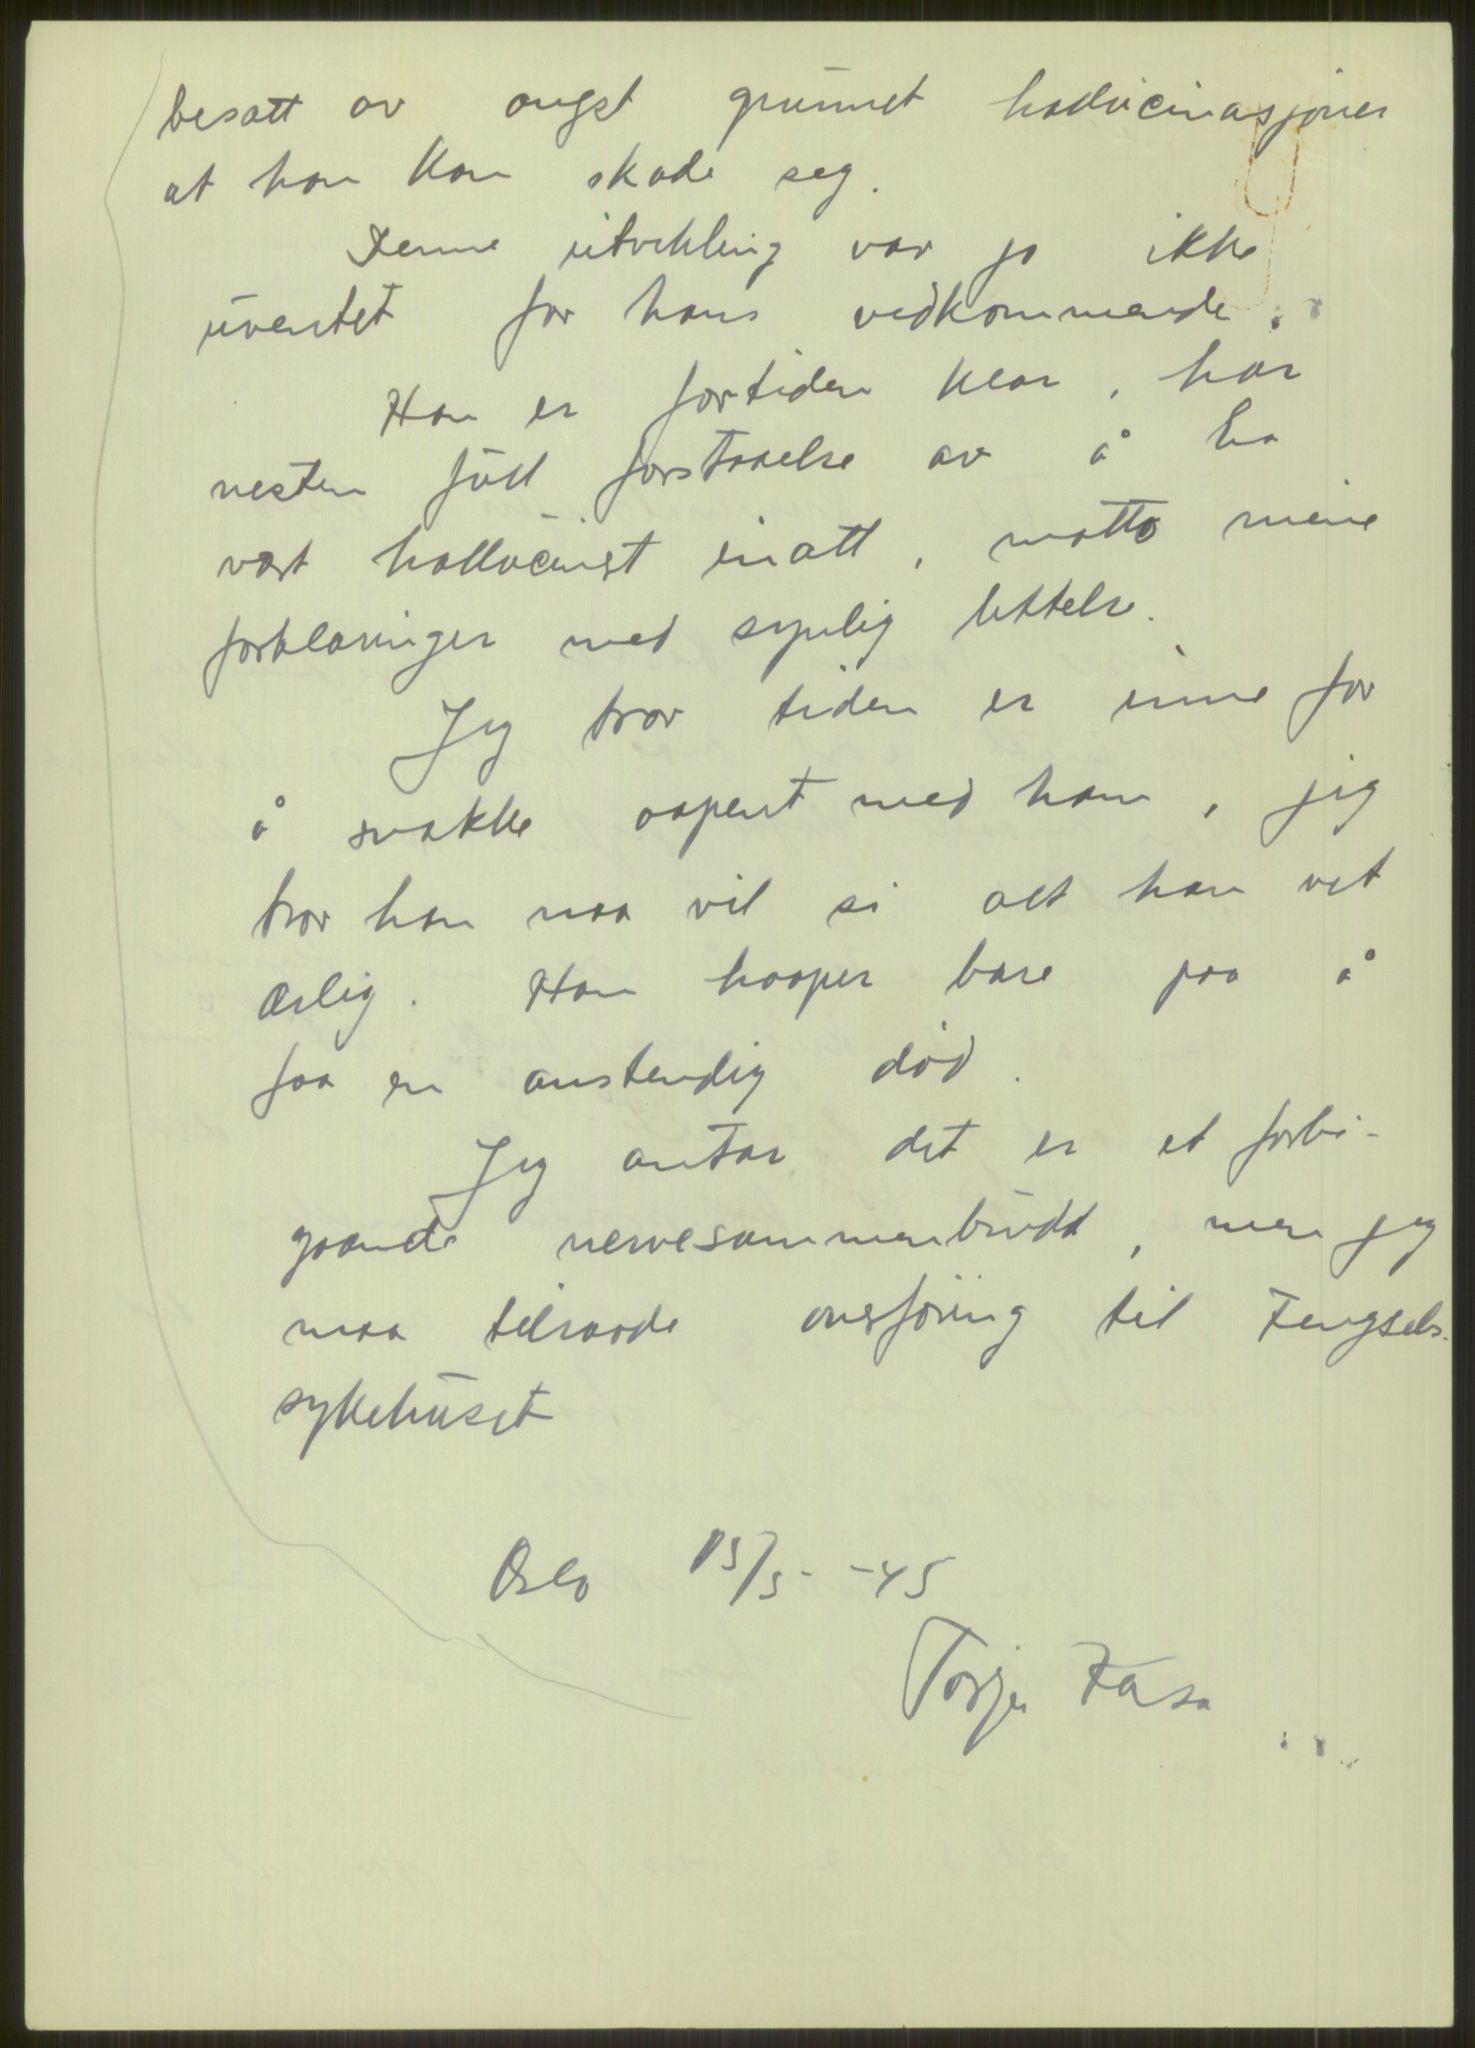 besatt av angst grunnet hallucinasjoner
at han kan skade seg.
Denne utvikling var jo ikke
uventet for hans vedkommende.
Han er fortiden klar, har
nesten full forstaaelse av å ha
vært hallucinert inatt, mottok mine
forklaringer med synlig lettelse.
Jeg tror tiden er inne for
å snakke aapent med ham, jeg
tror han naa vil si alt han vet
ærlig. Han haaper bare paa å
faa en anstendig død.
Jeg antar det er et forbi-
gaaende nervesammenbrudd, men jeg
maa tilraade overføring til Fengsels-
sykehuset
Oslo 15/5- -45